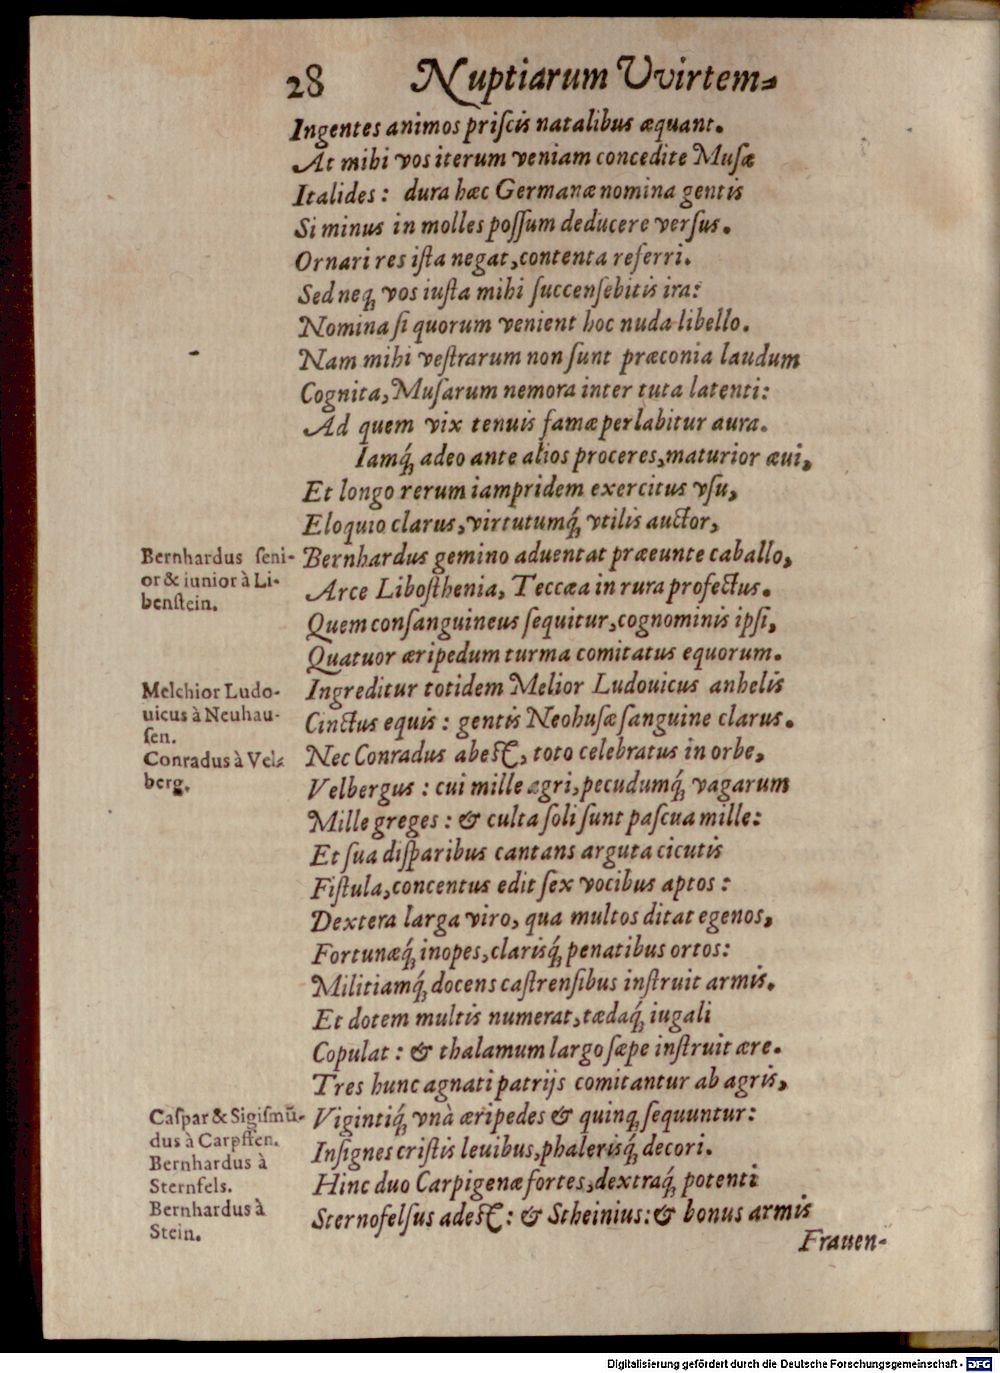 28 Nuptiarum Vvirtem-
Ingentes animos priſcis natalibus æquant.
At mihi vos iterum veniam concedite Muſæ
Italides: dura hæc Germanæ nomina gentis
Si minus in molles poſſum deducere verſus.
Ornari res iſta negat, contenta referri.
Sed neq́ vos iuſta mihi ſuccenſebitis ira:
Nomina ſi quorum venient hoc nuda libello.
Nam mihi veſtrarum non ſunt præconia laudum
Cognita, Muſarum nemora inter tuta latenti:
Ad quem vix tenuis famæ perlabitur aura.
Iamq́ adeo ante alios proceres, maturior æui,
Et longo rerum iampridem exercitus vſu,
Eloquio clarus, virtutumq́ vtilis auctor,
Bernhardus ſeni-
or & iunior à Li-
benſtein.
Bernhardus gemino aduentat præeunte caballo,
Arce Liboſthenia, Teccæa in rura profectus.
Quem conſanguineus ſequitur, cognominis ipſi,
Quatuor æripedum turma comitatus equorum.
Melchior Ludo-
uicus à Neuhau-
ſen.
Ingreditur totidem Melior Ludouicus anhelis
Cinctus equis: gentis Neohuſæ ſanguine clarus.
Conradus à Vel-
berg.
Nec Conradus abeſt, toto celebratus in orbe,
Velbergus: cui mille agri, pecudumq́ vagarum
Mille greges: & culta ſoli ſunt paſcua mille:
Et ſua diſparibus cantans arguta cicutis
Fiſtula, concentus edit ſex vocibus aptos:
Dextera larga viro, qua multos ditat egenos,
Fortunæq́ inopes, clarisq́ penatibus ortos:
Militiamq́ docens caſtrenſibus inſtruit armis.
Et dotem multis numerat, tædaq́ iugali
Copulat: & thalamum largo ſæpe inſtruit ære.
Tres hunc agnati patrijs comitantur ab agris,
Caſpar & Sigiſmū-
dus à Carpffen.
Bernhardus à
Sternfels.
Bernhardus à
Stein.
Vigintiq́ vnà æripedes & quinq́ ſequuntur:
Inſignes criſtis leuibus, phalerisq́ decori.
Hinc duo Carpigenæ fortes, dextraq́ potenti
Sternofelſus adeſt: & Stheinius: & bonus armis
Frauen-
Digitalisierung gefördert durch die Deutsche Forschungsgemeinschaft - DFG